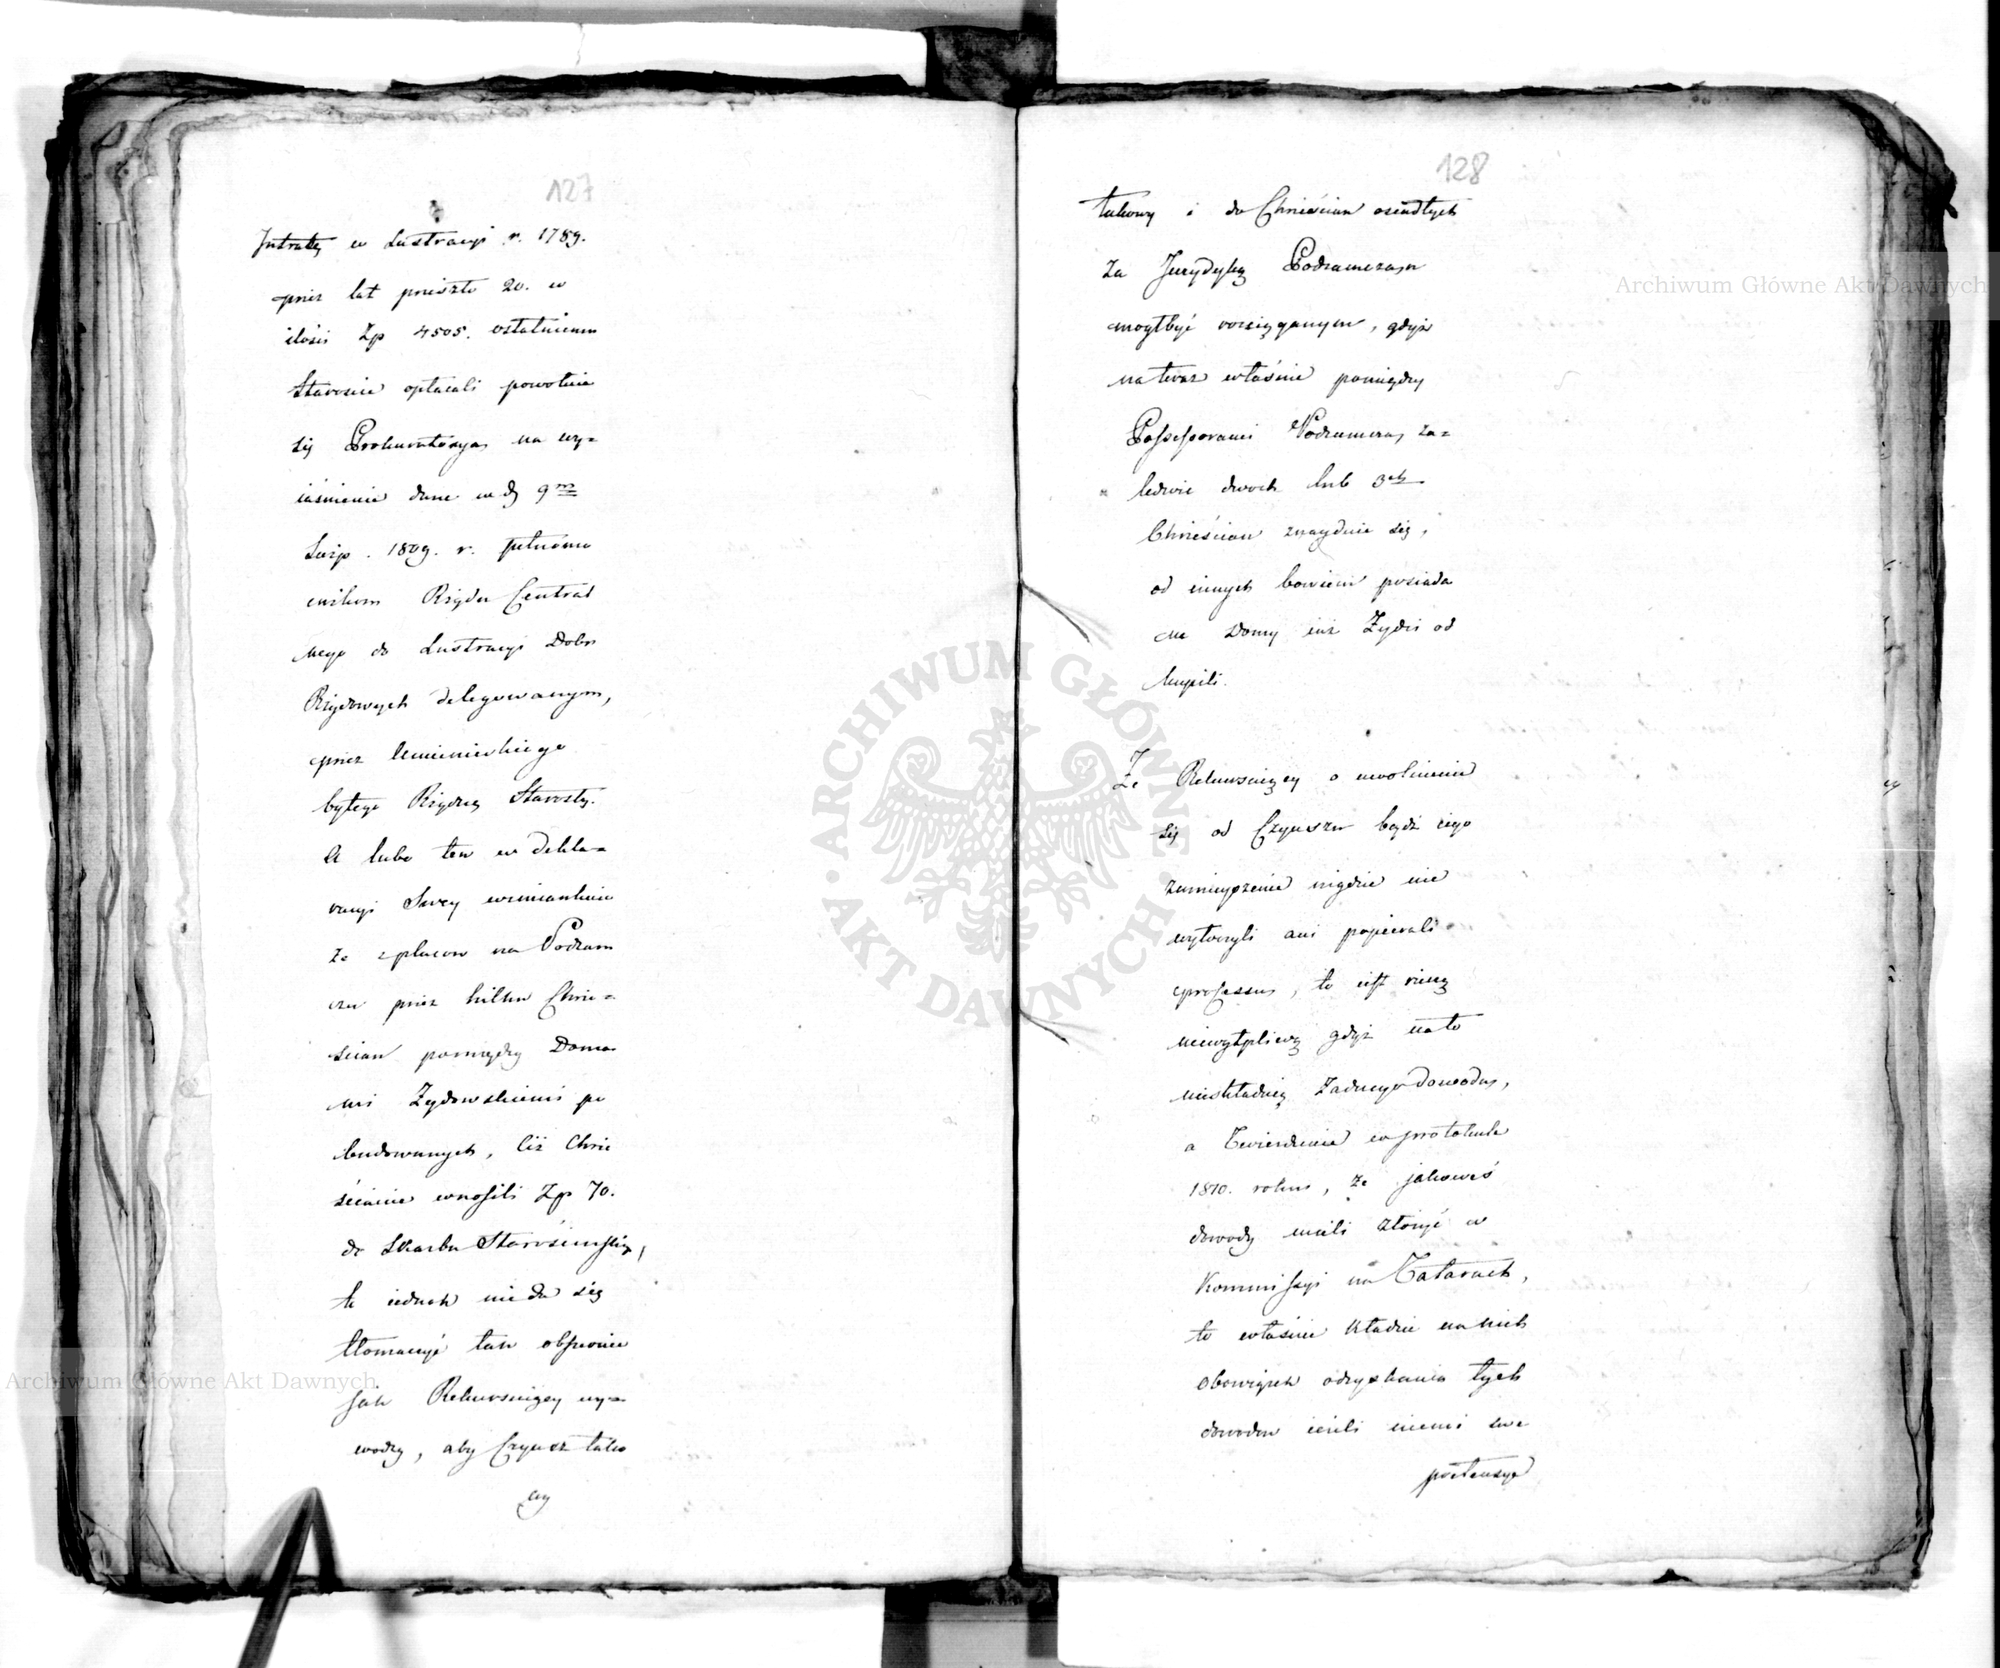 127
Intratę w Lustracyi r. 1789.
przez lat przeszło 20. w
ilości Zp 4505. ostatniemu
Staroście opłacali powołuie
się Prokuratorya na wy=
iaśnienie dane w d 9m
Sierp. 1809. r. pełnomo
cnikom Rządu Central
nego do Lustracyi Dobr
Rządowych delegowanym,
przez
byłego Rządzcę Starosty.
A lubo ten w Dekla=
racyi Swey wzmiankuie
że z placow na Podzam
czu przez kilku Chrze=
ścian pomiędzy Doma
mi Żydowskiemi po
budowanych, Ciż Chrze
ścianie wnosili Zp 70.
do Skarbu Starościnskiego,
to iednak nieda się
tłomaczyć tak obszernie
jak Rekursuiący wy=
wodzą, aby Czynsz tako
wy
128
takowy i do Chrześcian osiadłych
za Jurydykę Podzamcza
mogłbyć rozciąganym, gdyż
nateraz właśnie pomiędzy
Possessorami Podzamcza, za=
ledwie dwoch lub 3ch
Chrześcian znayduie się,
od innych bowiem posiada
ne Domy iuż Żydzi od
kupili.
Że Rekursuiący o uwolnienie
się od Czynszu bądź iego
zmnieyszenie nigdzie nie
wytoczyli ani popierali
processu, to iest rzeczą
niewątpliwą gdyż nato
nieskładaią żadnego dowodu,
a Twierdzenie w protokule
1810. roku, że jakoweś
dowody mieli złożyć w
Kommissyi na Tatarach,
to właśnie kładzie na nich
obowiązek odzyskania tych
dowodow ieżeli niemi swe
pretensye
Archiwum Główne Akt Dawnych
Archiwum Główne Akt Dawnych
ARCHIWUM GŁÓWNE AKT DAWNYCH